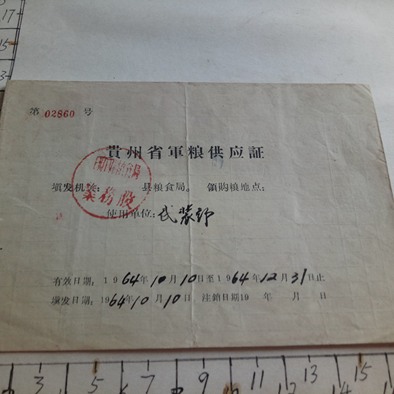 第 02860 号
貴州省軍粮供应証
填发机关: 县粮食局。 領购粮地点:
業务股
使用單位: 武装部
有效日期: 1964年10月10日至1964年12月31日止
填发日期: 1964年10月10日 注銷日期19 年 月 日
17
15
3 5 7 9 11 13 15